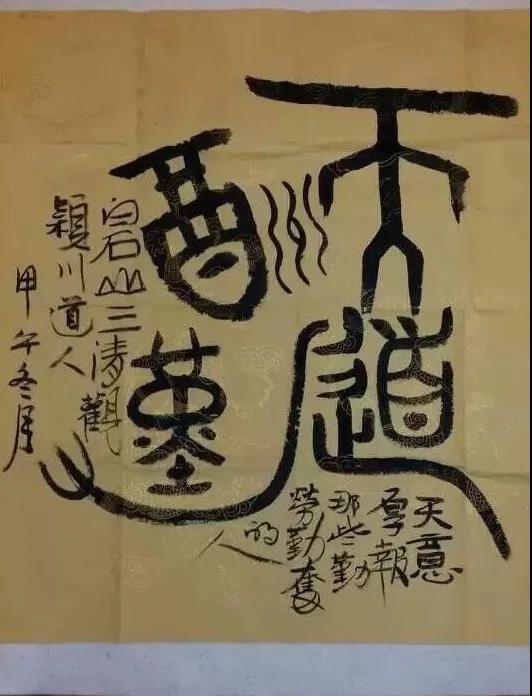 天道
酬勤
天意
厚報
那些勤
勞勤奮
的
人
白石山三清觀
穎川道人
甲午冬月